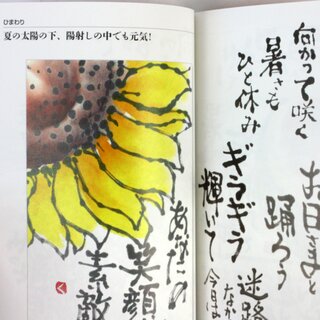 ひまわり
夏の太陽の下、陽射しの中でも元気!
あなたの
笑顔
素敵
く
向かって咲く
暑さも
ひと休み
ギラギラ
輝いて
今日は
お日さまと
踊ろう
迷路
なか